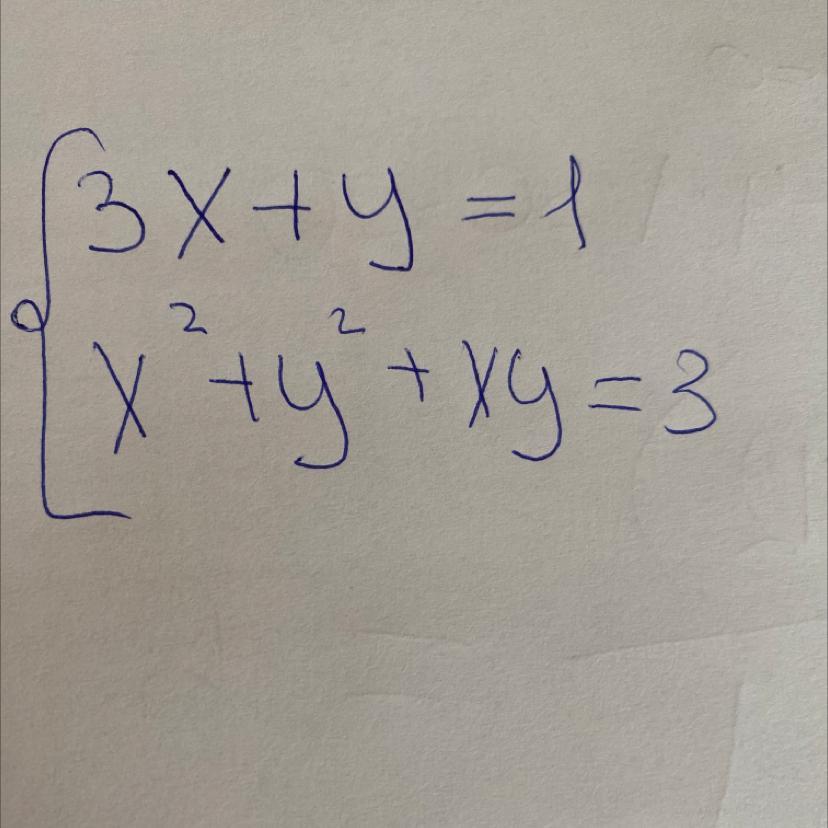 3x+y=1
x²+y²+xy=3